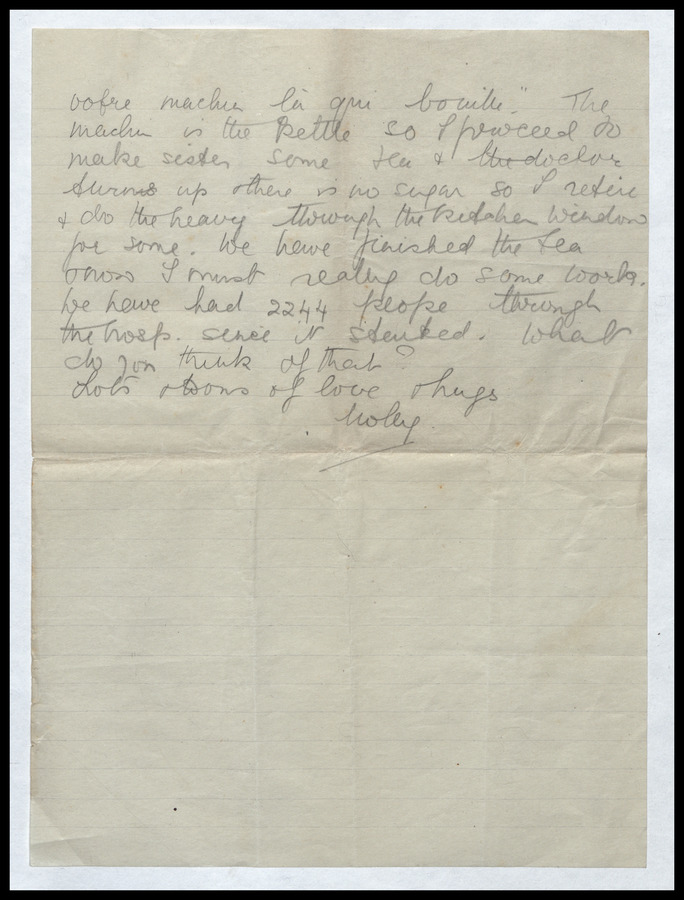 votre machin là qui bouille". The
machin is the kettle so I proceed to
make sister some tea & the doctor
turns up & there is no sugar so I retire
& do the heavy through the kitchen window
for some. We have finished the tea
now I must really do some work.
We have had 2244 people through
the hosp. since it started. What
do you think of that?
Lots & tons of love & hugs